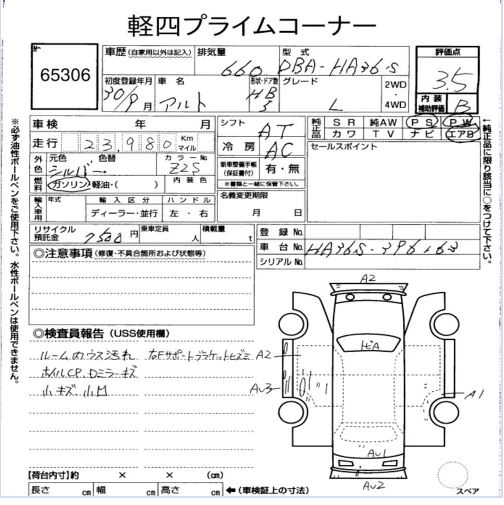 軽四プライムコーナー
No.
65306
車歴 (自家用以外は記入)
排気量
660
型式
DBA-HA36S
評価点
3.5
初度登録年月
30/9月
車名
アルト
形状・ドア数
HB
5
グレード
L
2WD
・
4WD
内装
補助評価
B
車検 年 月
走行 23,980 Km
マイル
シフト
AT
冷房
AC
純正品
SR 純AW PS PW
カワ TV ナビ エアB
セールスポイント
外色
元色
シルバー
色替
カラーNo
Z2S
燃料
ガソリン・軽油・( )
内装色
新車整備手帳
(保証書付)
有・無
※書類と一緒に保管下さい。
輸入車用
年式
輸入区分
ディーラー・並行
ハンドル
左・右
名義変更期限
月 日
リサイクル
預託金
7500円
乗車定員
人
積載量
t
登録No.
車台No.
HA36S-396163
シリアルNo.
※必ず油性ボールペンをご使用下さい。水性ボールペンは使用できません。
※純正品に限り該当に○をつけて下さい。
◎注意事項 (修復・不具合箇所および状態等)
◎検査員報告 (USS使用欄)
ルーム内ハウス汚れ 右Fサポートブラケットヒズミ
ホイルCP、Dミラーキズ
小キズ 小凹
A2
ヒA
A2
AU3
A1
AU1
AU2
スペア
【荷台内寸】約 × × (cm)
長さ cm 幅 cm 高さ cm ←(車検証上の寸法)